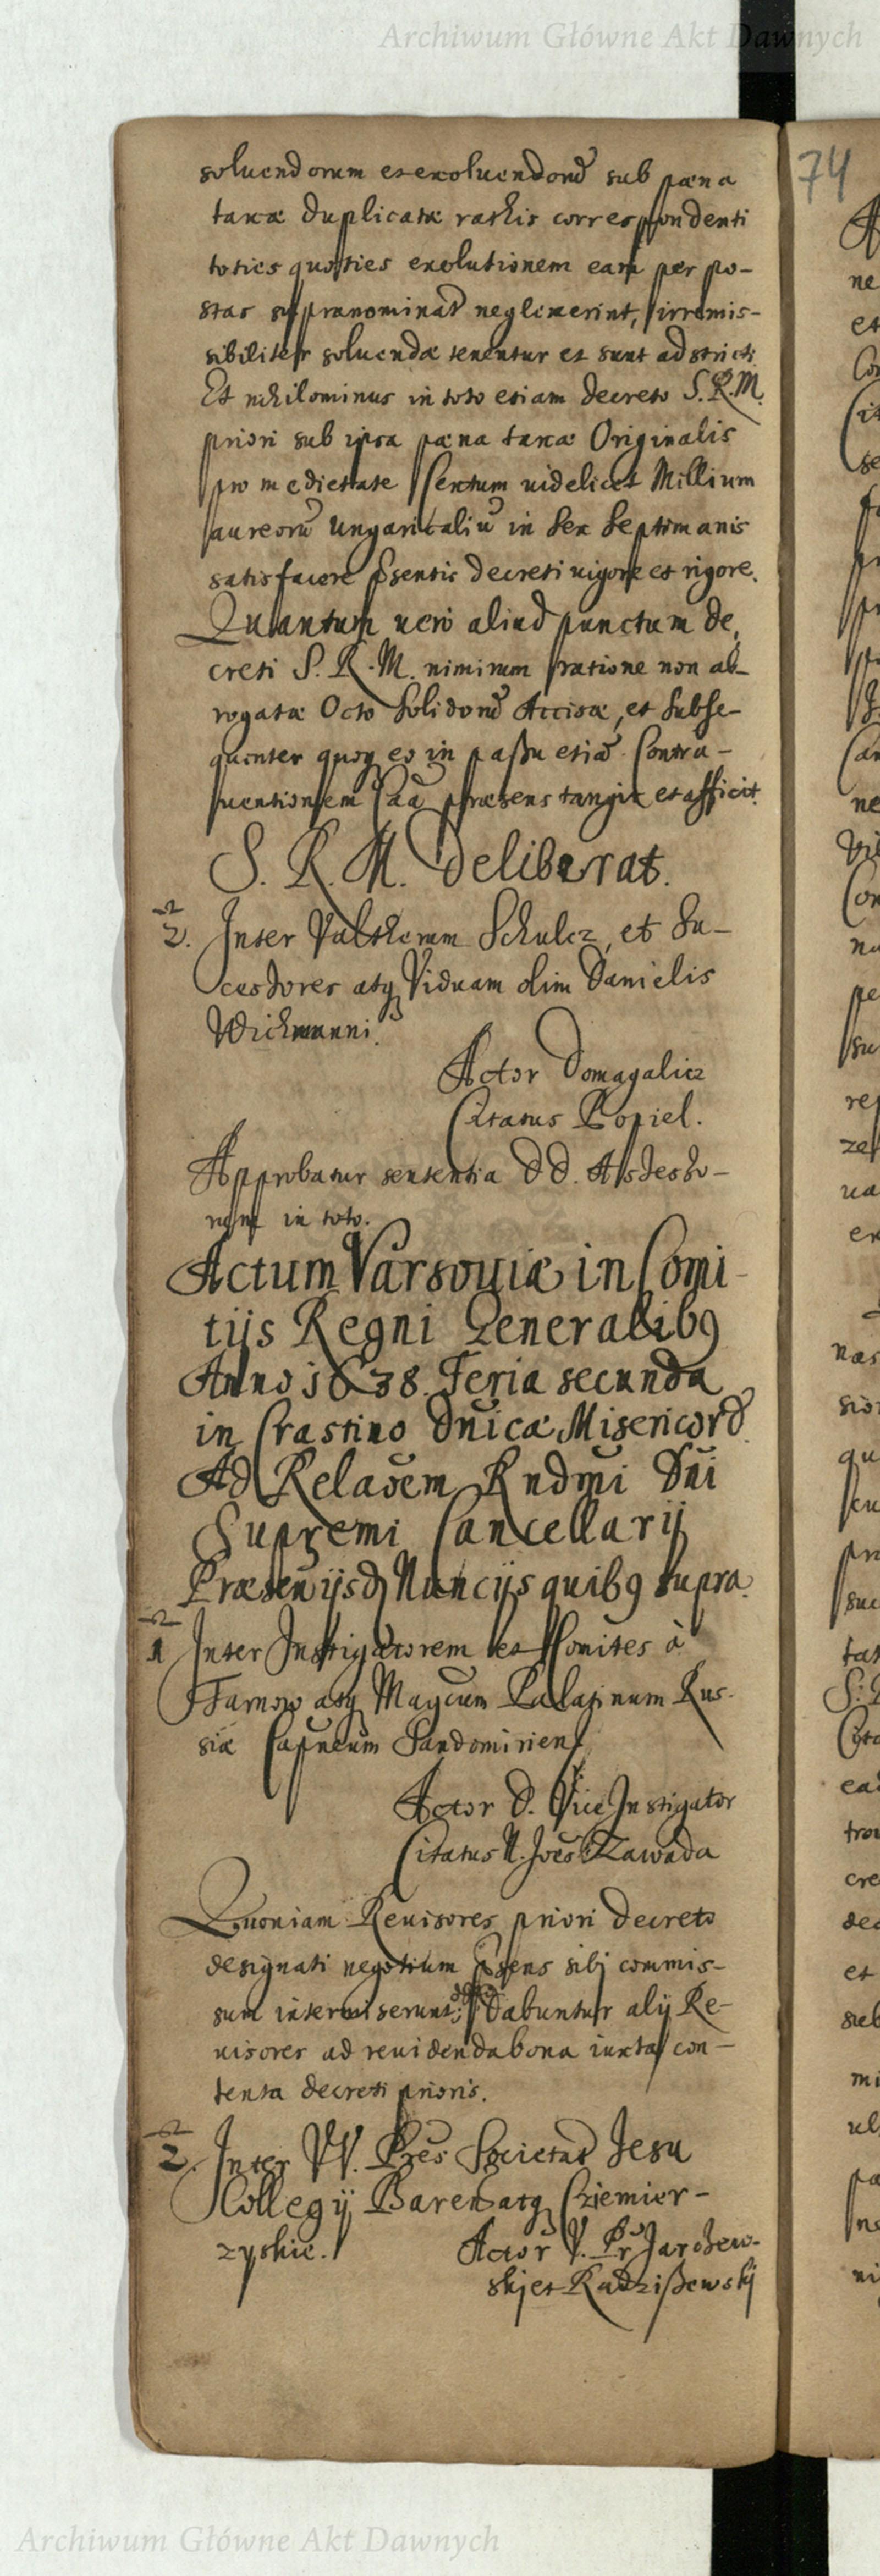 Archiwum Główne Akt Dawnych
74
soluendorum et exoluendorũ sub pæna
taxæ duplicatæ rathis correspondenti
toties quoties exolutionem eam per po-
stas supranominat neglexerint, irremis-
sibiliter soluendæ tenentur et sunt adstricti.
Et nihilominus in toto etiam decreto S.R.M.
priori sub ipsa pæna taxæ Originalis
pro medietate Sextum uidelicet Millium
aureorũ Ungaricaliũ in sex septimanis
satisfacere pñsentis decreti uigore et rigore.
Quantum uero aliud punctum de,
creti S.R.M. nimirum ratione non ab-
rogatæ Octo solidorũ Accisæ, et subse-
quenter quoq eo in passu etiã Contra-
uentionem Caã præsens tangit et afficit.
S. R. M. deliberat.
2. Inter Valtherum Schulcz, et Su-
cessores atq Viduam olim Danielis
Wichmanni.
Actor Domagalicz
Citatus Popiel.
Approbatur sententia DD. Assesso-
rum in toto.
Actum Varsouiæ in Comi-
tijs Regni Generalibꝯ
Anno 1638. Feria secunda
in Crastino Dñicæ Misericord
Ad Relaõem Rndmi Dñi
Supremi Cancellarij
Præsen ijsdq Nuncijs quibꝯ supra.
1 Inter Instigatorem et Comites à
Tarnow atq Magcum Palatinum Rus-
siæ Capneum Sandomirien
Actor D. Vice Instigator
Citatus N. Joẽs Zawada
Quoniam Reuisores priori decreto
designati negotium pñsens sibj commis-
sum intermiserunt; Dabuntur alij Re-
uisores ad reuidenda bona iuxta con-
tenta decreti prioris.
2. Inter VV. Pres Societat Jesu
Collegij Baren atq Cziemier-
zyskie.
Actor V. Pr Jarosew-
skj et Radziszewskj
Archiwum Główne Akt Dawnych